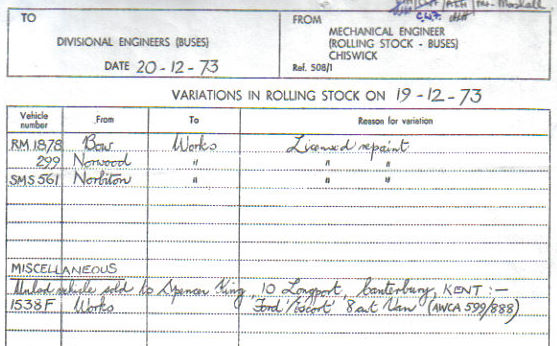 TO
DIVISIONAL ENGINEERS (BUSES)
DATE 20-12-73
FROM
MECHANICAL ENGINEER
(ROLLING STOCK - BUSES)
CHISWICK
Ref. 508/1
VARIATIONS IN ROLLING STOCK ON 19-12-73
Vehicle number From To Reason for variation
RM 1878 Bow Works Licensed repaint
299 Norwood " " "
SMS 561 Norbiton " " "
MISCELLANEOUS
vehicle sold to Spencer King, 10 Longport, Canterbury, KENT :—
1538F Works 'Ford 'Escort' 8 cwt Van (AWCA 599/888)